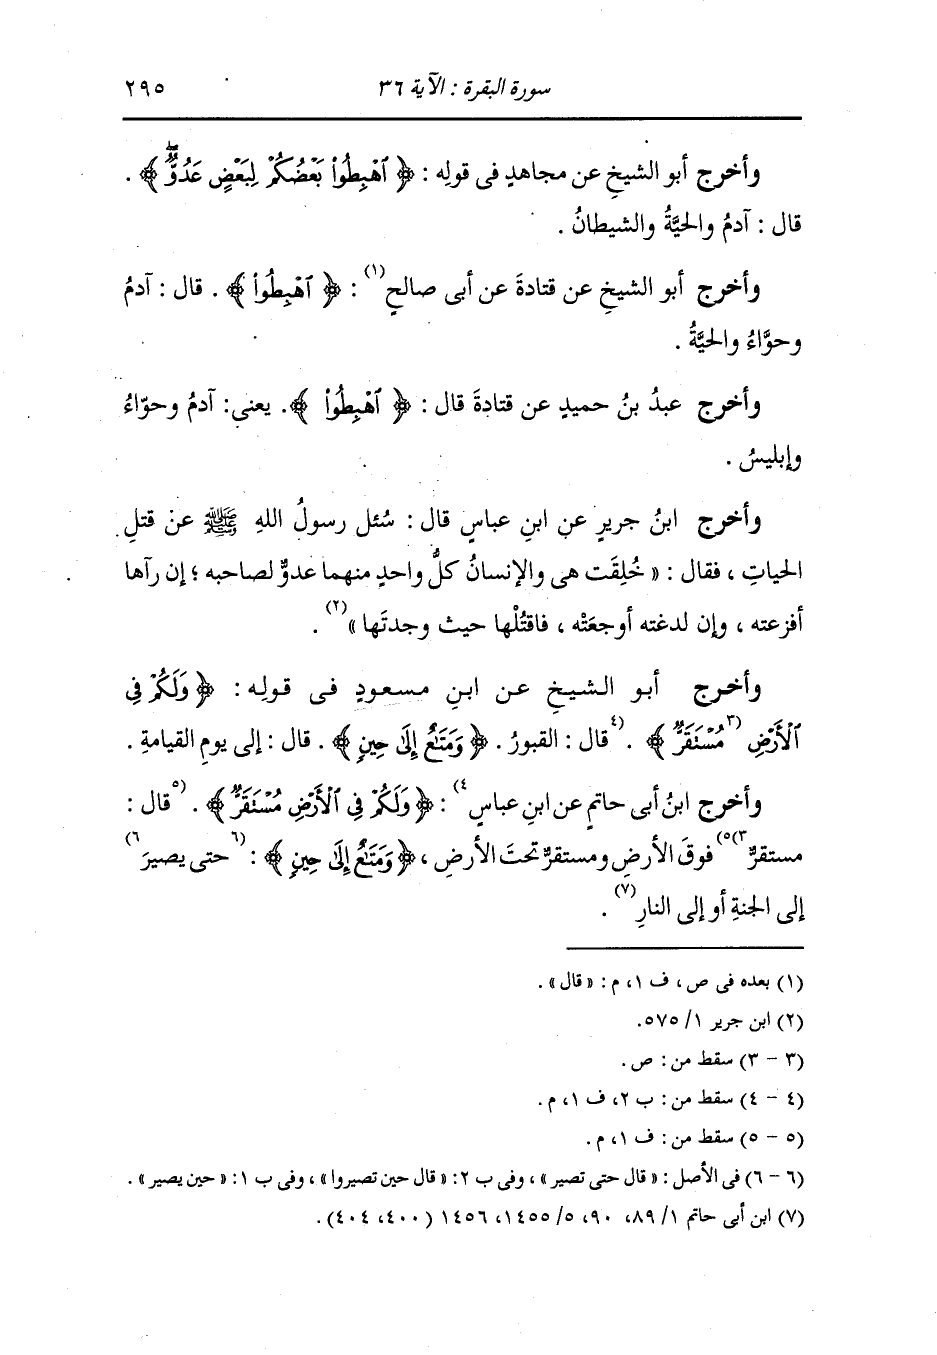 سورة البقرة : الآية ٣٦ ٢٩٥
وأخرج أبو الشيخِ عن مجاهدٍ فى قولِه : ﴿ ٱهْبِطُوا۟ بَعْضُكُمْ لِبَعْضٍ عَدُوٌّ ۖ ﴾ .
قال : آدمُ والحيَّةُ والشيطانُ .
وأخرج أبو الشيخِ عن قتادةَ عن أبى صالحٍ(١) : ﴿ ٱهْبِطُوا۟ ﴾ . قال : آدمُ
وحوَّاءُ والحيَّةُ .
وأخرج عبدُ بنُ حميدٍ عن قتادةَ قال : ﴿ ٱهْبِطُوا۟ ﴾ . يعنى : آدمُ وحوّاءُ
وإبليسُ .
وأخرج ابنُ جريرٍ عن ابنِ عباسٍ قال : سُئل رسولُ اللهِ ﷺ عن قتلِ
الحياتِ ، فقال : « خُلِقَت هى والإنسانُ كلُّ واحدٍ منهما عدوٌّ لصاحبه ؛ إن رآها
أفزعته ، وإن لدغته أوجعَتْه ، فاقتُلْها حيث وجدتَها »(٢) .
وأخرج أبو الشيخِ عن ابنِ مسعودٍ فى قولِه : ﴿ وَلَكُمْ فِى
ٱلْأَرْضِ (٣مُسْتَقَرٌّ ﴾ . (٤قال : القبورُ . ﴿ وَمَتَٰعٌ إِلَىٰ حِينٍ ﴾ . قال : إلى يومِ القيامةِ .
وأخرج ابنُ أبى حاتمٍ عن ابنِ عباسٍ٤) : ﴿ وَلَكُمْ فِى ٱلْأَرْضِ مُسْتَقَرٌّ ﴾ . (٥قال :
مستقرٌّ٣)٥) فوقَ الأرضِ ومستقرٌّ تحتَ الأرضِ ، ﴿ وَمَتَٰعٌ إِلَىٰ حِينٍ ﴾ : (٦حتى يصيرَ٦)
إلى الجنةِ أو إلى النارِ(٧) .
(١) بعده فى ص ، ف ١، م : « قال » .
(٢) ابن جرير ١/ ٥٧٥.
(٣ – ٣) سقط من : ص .
(٤ – ٤) سقط من : ب ٢، ف ١، م .
(٥ – ٥) سقط من : ف ١، م .
(٦ – ٦) فى الأصل : « قال حتى تصير » ، وفى ب ٢: « قال حين تصيروا » ، وفى ب ١: « حين يصير » .
(٧) ابن أبى حاتم ١/ ٨٩، ٩٠، ٥/ ١٤٥٥، ١٤٥٦ (٤٠٠، ٤٠٤) .